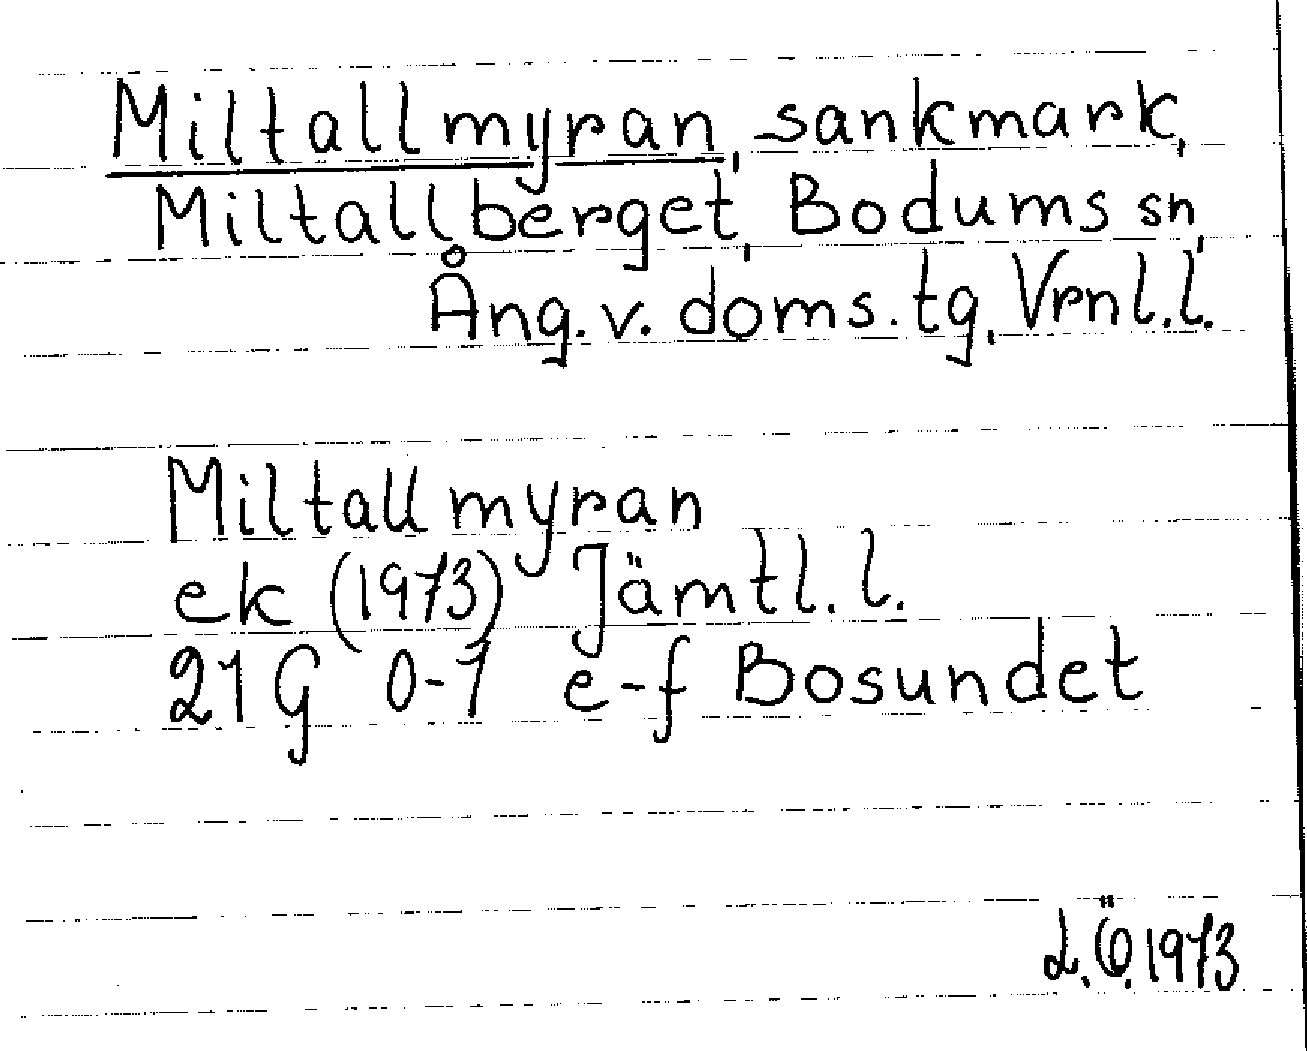 Miltallmyran, sankmark,
Miltallberget, Bodums sn,
Ång. v. doms. tg, Vrnl. l.
Miltallmyran
ek (1973) Jämtl. l.
21 G 0-1 e-f Bosundet
L. Ö. 1973